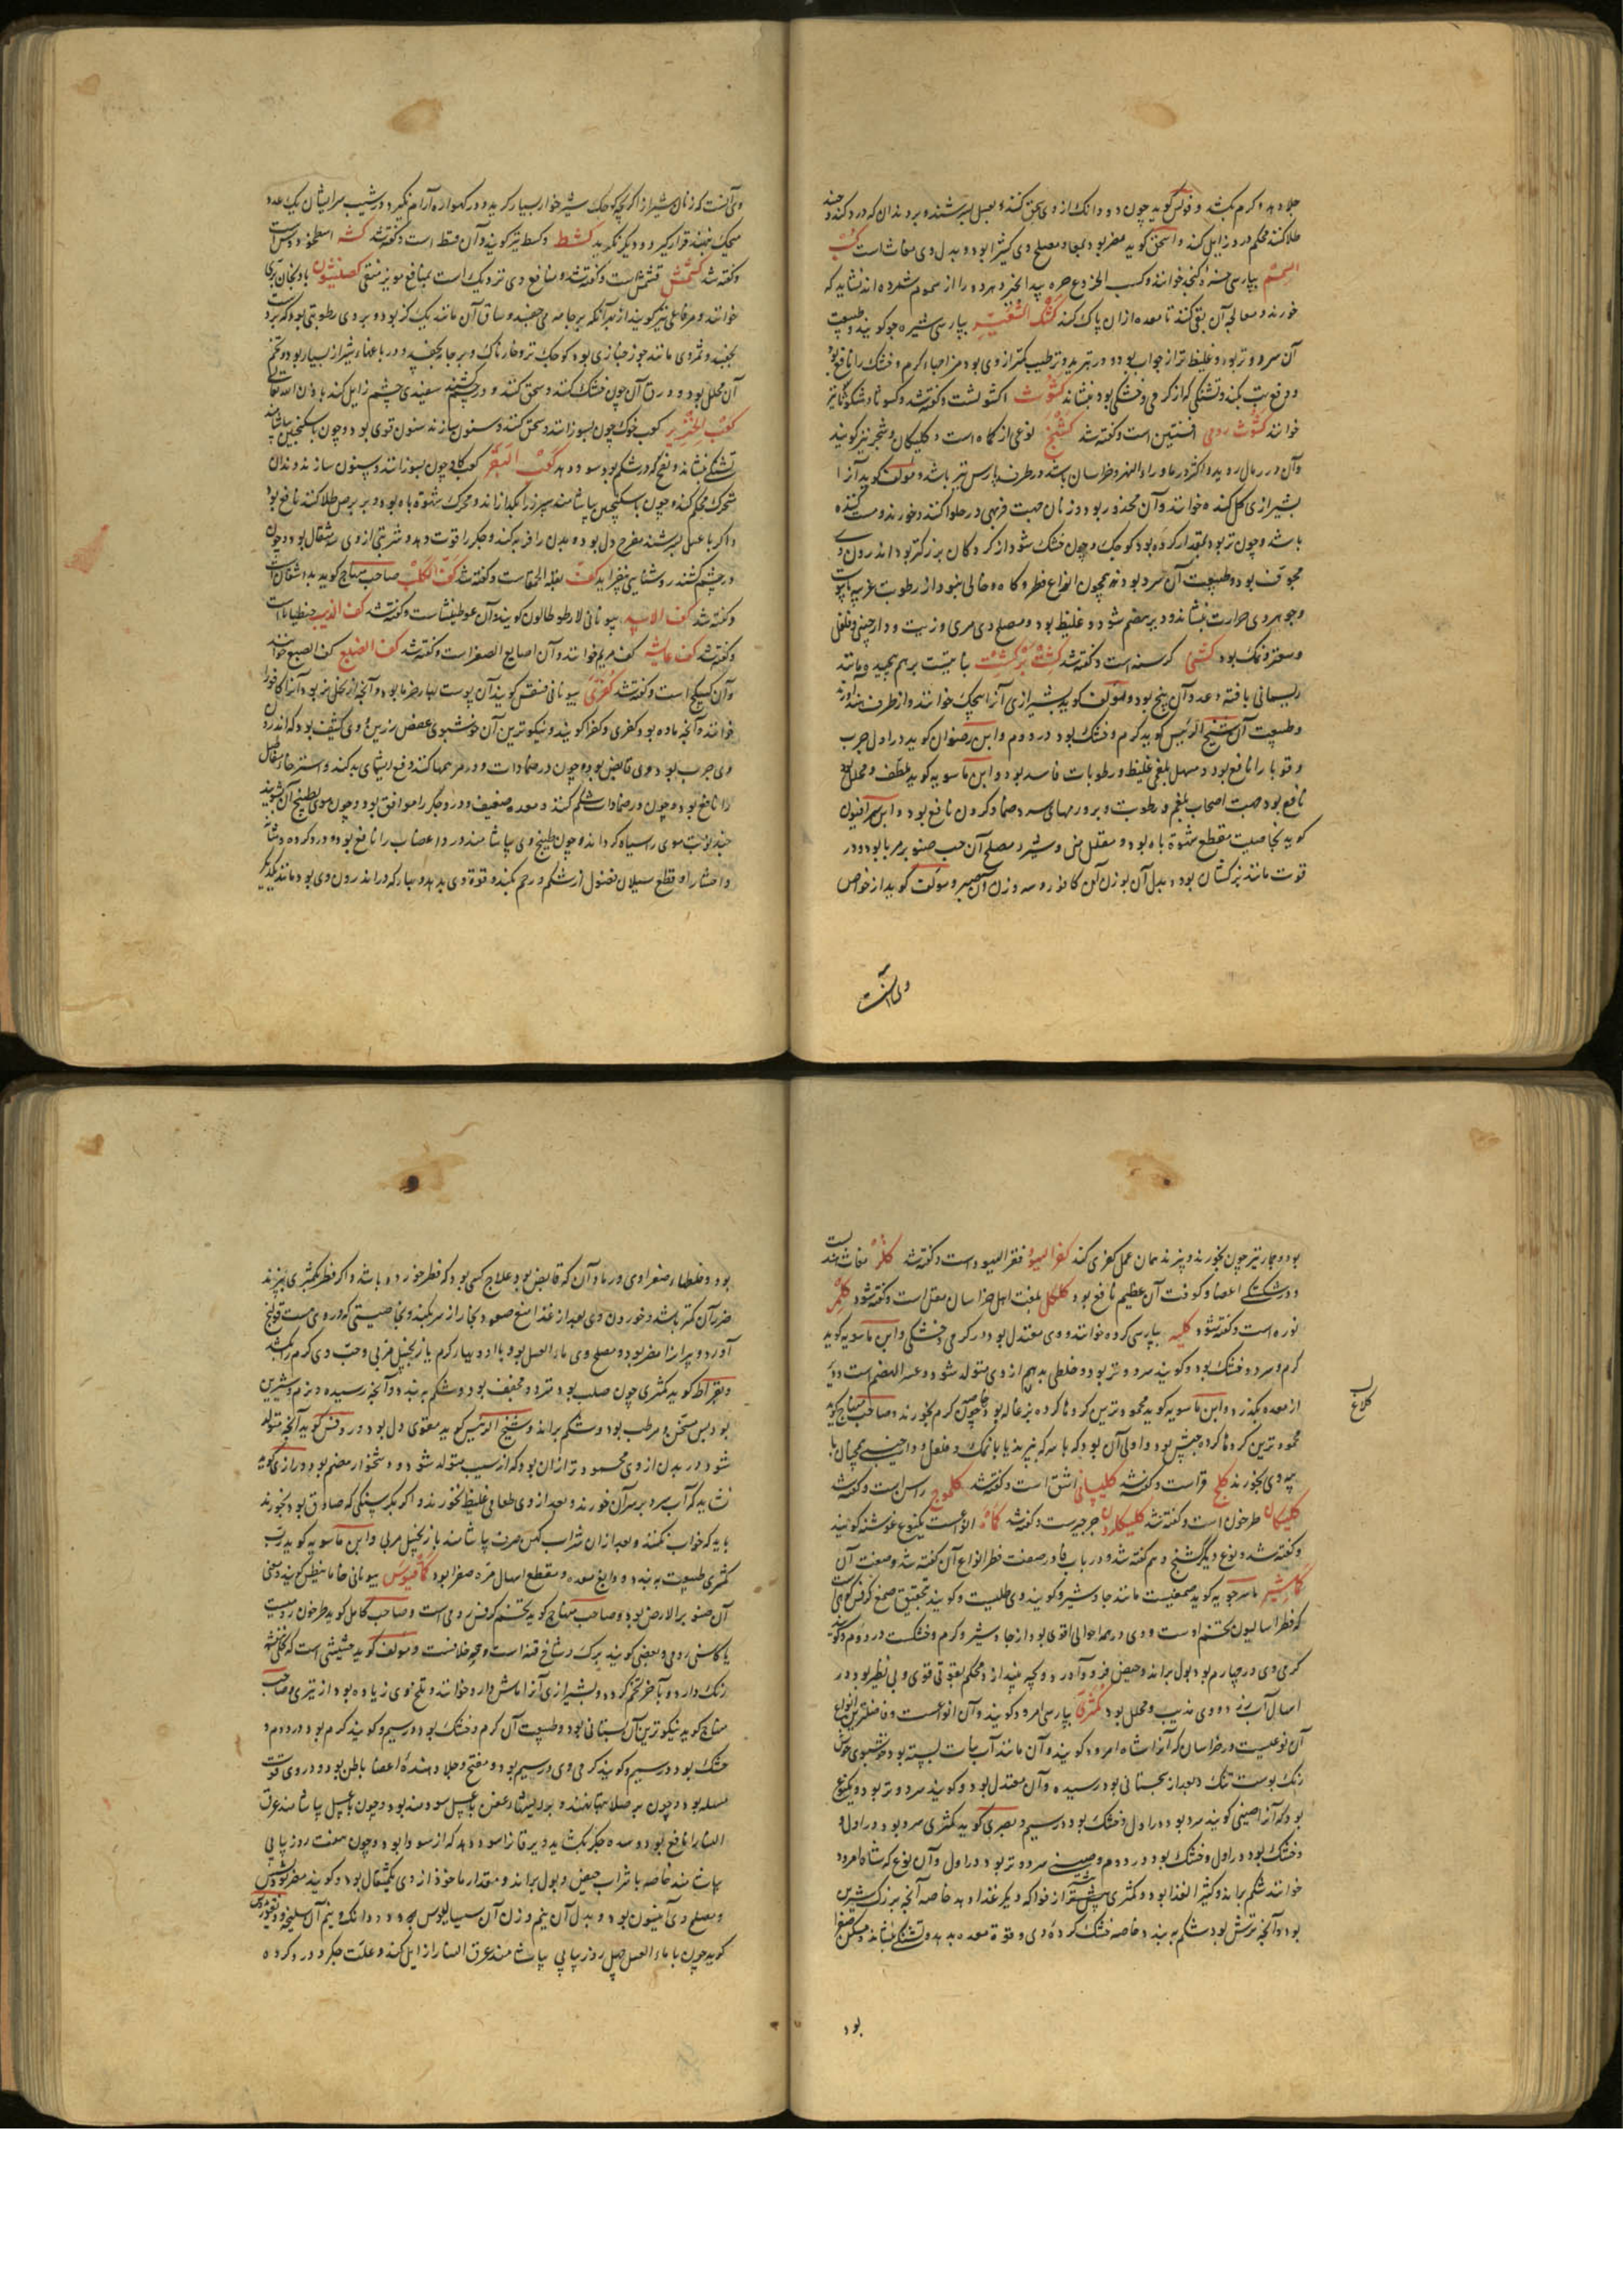 جلا دهد و کرم بکشد و فولس گوید چون دو دانک از وی سحق کنند و بعسل بسرشند و بر دندان که درد کند چند
طلا کنند محکم درد زایل کند و اسحق گوید مضر بود بمعا و مصلح وی کثیرا بود و بدل وی مغاث است کسب
السمسم بپارسی کنجد خوانند و کسب الخروع خیره پید انجیر و هر دو را از سموم شمرده اند نشاید که
خورند و معالجه آن بقی کنند تا معده ازان پاک کند کشک الشعیر بپارسی شیره جو گویند و طبیعت
آن سرد و تر بود و غلیظ تر از جواب بود و در تبرید و ترطیب کمتر از وی بود مزاجهاء گرم و خشک را نافع بود
و دفع تب بکند و تشنگی که از گرمی و خشکی بود بنشاند کشوث اکشوث است و گفته شد و کسوثا و شکوثا نیز
خوانند کشوث رومی افسنتین است و گفته شد کشنج نوعی از کماه است و کلیکان و شجر نیز گویند
وآن در رمال روید و اکثر در ماوراء النهر و خراسان باشد و در طرف پارس نیز باشد و مولف گوید آنرا
بشیرازی کل کنده خوانند وآن مخدر بود و زنان جهت فربهی در حلوا کنند و خورند و مست کننده
باشد و چون تر بود بمقدار گرده بود کوچک و چون خشک شود از گردکان بزرگتر بود اندرون وی
مجوف بود و طبیعت آن سرد بود نه همچون انواع فطر و کماه و خالی نبود از رطوبت غریبه
و جوهر وی حرارت بنشاند و دیر هضم شود و غلیظ بود و مصلح وی مری و زیت و دارچینی و فلفل
و سعتر و نمک بود کشنی کرسنه است و گفته شد کشت بر کشت نباتیست برهم پیچیده مانند
ریسمانی بافته و عدد آن پنج بود و مولف گوید بشیرازی آنرا پیچک خوانند و از طرف هند آورند
و طبیعت آن شیخ الرئیس گوید گرم و خشک بود در دوم و ابن رضوان گوید در اول جرب
و قوبا را نافع بود و مسهل بلغم غلیظ و رطوبات فاسد بود و ابن ماسویه گوید ملطف و محلل بود
نافع بود جهت اصحاب بلغم و رطوبت و بر ورمهای سرد ضماد کردن نافع بود و ابن سرافیون
گوید بخاصیت مقطع شهوة باه بود و مقلل منی و شیر و مصلح آن حب صنوبر مربا بود و در
قوت مانند بزر کتان بود و بدل آن بوزن آن کافور و سه وزن آن صبر و مولف گوید از خواص
وی آنست
وی آنست که زنان شیراز اگر بچه کوچک شیر خوار بسیار گرید و در گهواره آرام نگیرد در شیب سر ایشان یک عدد
پیچک بنهند قرار گیرد و دیگر نگرید کشط و کسط نیز گویند و آن قسط است و گفته شد کشه اسطوخودوس است
و گفته شد کشمش قشمش است و گفته شد و منافع وی نزدیک است بمنافع مویز منقی کصنیثون بادنجان بری
خوانند و مرقاملی نیز گویند از بهر آنکه بر جامه می چفسد و ساق آن مانند یک گز بود و بر وی رطوبتی بود که بر دست
بچفسد و ثمر وی مانند جوز خبازی بود کوچک تر و خارناک و بر جامه بچفسد و در باغهاء شیراز بسیار بود و تخم
آن محلل بود و ورق آن چون خشک کنند و سحق کنند و در چشم کشند سفیدی چشم زایل کند باذن الله تعالی
کعب الخنزیر کعب خوک چون بسوزانند و سحق کنند و سنون سازند سنون قوی بود و چون با سکنجبین بیاشامند
تشنگی بنشاند و نفخ که در شکم بود سود دهد کعب البقر کعب گاو چون بسوزانند و سنون سازند دندان
متحرک محکم کند و چون با سکنجبین بیاشامند سپرز را بگدازاند و محرک شهوة باه بود و بر برص طلا کنند نافع بود
و اگر با عسل بسرشند مفرح دل بود و بدن را فربه کند و جگر را قوت دهد و شربتی از وی سه مثقال بود و چون
در چشم کشند روشنایی بیفزاید کف بقله الحمقاست و گفته شد کف الکلب صاحب منهاج گوید بداشقان است
و گفته شد کف الاسد بیونانی لارطوطالون گویند و آن عرطنیثاست و گفته شد کف الذیب جنطیانا است
و گفته شد کف عایشه کف مریم خوانند و آن اصابع الصفر است و گفته شد کف الضبع کف السبع خوانند
و آن کبیکج است و گفته شد کفری بیونانی فنیقس گویند آن پوست بهار خرما بود و آنچه از نخل نر بود آنرا کافور
خوانند و آنچه ماده بود کفری و کفرا گویند و نیکوترین آن خوشبوی عفص رزین بود و کثیف بود که اندرون
وی چرب بود و وی قابض بود و چون در ضمادات و مرهمها کنند دفع ریشهای بد کند و استرخاء مفاصل
را نافع بود و چون در ضمادات شکم کنند و معده ضعیف و درد جگر را موافق بود و چون موی بطبیخ آن بشویند
چند نوبت موی را سیاه گرداند و چون طبیخ وی بیاشامند درد اعصاب را نافع بود و درد گرده و مثانه
و احشا را و قطع سیلان فضول از شکم و رحم بکند و قوة وی بدهد و بهار که در اندرون وی بود مانند یکدیگر
بود و جمار نیز چون بخورند و بپزند همان عمل کفری کند کفر الیهود قفر الیهود است و گفته شد کلز مغاث هندیست
و در شکستگی اعضا و کوفت آن عظیم نافع بود کلکل بلغت اهل خراسان مقل است و گفته شود کلس
نوره است و گفته شود کلیه بپارسی گرده خوانند و وی معتدل بود در گرمی و خشکی و ابن ماسویه گوید
گرم و سرد و خشک بود و گویند سرد و تر بود و خلطی بد هم از وی متولد شود و عسر الهضم است و دیر
از معده بگذرد و ابن ماسویه گوید محمودترین گردها گرده بزغاله بود و چون گرم بخورند و صاحب منهاج گوید
محمودترین گردها گرده میش بود و اولی آن بود که با سرکه بپزند یا با نمک و فلفل و دارچینی همچنان با
پیه وی بخورند کلخ قنا است و گفته شد کلیانی اشق است و گفته شد کلموج راسن است و گفته شد
کلیکان طرخون است و گفته شد کلیکارون جرجیر است و گفته شد کماه انواع است یکنوع غوشنه گویند
و گفته شد و نوع دیگر کشنج وهم گفته شد و در باب فا در صفت فطر انواع آن گفته شد و صفت آن
کماشیر ماسرجویه گوید صمغیست مانند جاوشیر و گویند وی حلتیت و گویند بتحقیق صمغ کرفس کوهی است
که فطراسالیون تخم اوست و وی در همه احوال اقوی بود از جاوشیر و گرم و خشکست در دوم و گویند
گرمی وی در چهارم بود بول براند و حیض فرود آورد و بچه بیندازد محکم بقوتی قوی و بی نظیر بود در
اسهال آب زرد و وی مذیب و محلل بود کمثری بپارسی امرود گویند و آن انواع است و فاضلترین انواع
آن نوعیست در خراسان که آنرا شاه امرود گویند و آن مانند آب نبات بسته بود خوشبوی خوش
رنگ پوست تنک و بعد از بحستانی بود رسیده و آن معتدل بود و گویند سرد و تر بود و یکنوع
بود که آنرا صینی گویند سرد بود در اول و خشک بود در سیم و بصری گوید کمثری سرد بود در اول و
خشک بود در اول و خشک بود در دوم و صینی سرد و تر بود در اول و آن نوع که شاه امرود
خوانند شکم براند و کثیر الغذا بود و کمثری بیشتر از فواکه دیگر غذا دهد خاصه آنچه بزرگ شیرین
بود و آنچه ترش بود شکم ببندد خاصه خشک کرده وی و قوة معده بدهد و تشنگی بنشاند و مسکن صفرا
بود
کلاغ
بود و خلطهاء صفراوی و رماد آن که قابض بود علاج کسی بود که فطر خورده باشد و اگر فطر بکمثری بپزند
ضرر آن کمتر باشد و خوردن وی بعد از غذا منع صعود بخار از سر بکند و بخاصیتی که در وی هست قولنج
آورد و پیرانرا مضر بود و مصلح وی ماء العسل بود با ادویهاء گرم یا زنجبیل مربی و حب وی کرم را بکشد
و بقراط گوید کمثری چون صلب بود مبرد و مجفف بود و شکم ببندد و آنچه رسیده و نرم و شیرین
بود پس مسخن و مرطب بود و شکم براند و شیخ الرئیس گوید مقوی دل بود و روفس گوید آنچه متولد
شود در بدن از وی محمودتر ازان بود که از سیب متولد شود و دشخوار هضم بود و رازی گوید
نشاید که آب سرد بر سر آن خورند و بعد از وی طعامی غلیظ نخورند و اگر بگرسنگی که صادق بود بخورند
باید که خواب نکنند و بعد ازان شراب کهن صرف بیاشامند با زنجبیل مربی و ابن ماسویه گوید رب
کمثری طبیعت ببندد و دابغ معده و مقطع اسهال مره صفرا بود کمافیطوس بیونانی خامافیطس گویند و معنی
آن صنوبر الارض بود و صاحب منهاج گوید تخم کرفس رومی است و صاحب کامل گوید طرخون رومیست
یا کاسنی رومی و بعضی گویند برگ و شاخ قنه است و مجموع خلافست و مولف گوید حشیشی است که گل بنفشه
رنگ دارد و بآخر تخم گردد و بشیرازی آنرا ماش دارو خوانند و تلخی وی زیاده بود از تیزی و صاحب
منهاج گوید نیکوترین آن بستانی بود و طبیعت آن گرم و خشک بود در سیم و گویند گرم بود در دوم و
خشک بود در سیم و گویند گرمی وی در سیم بود و مفتح و جلا دهنده اعضاء باطن بود و در وی قوت
مسهله بود و چون بر صلابتها نهند و بر ریشهاء عفن با عسل سودمند بود و چون با عسل بیاشامند عرق
النسا را نافع بود و سده جگر بگشاید و یرقانرا سود دهد که از سودا بود و چون هفت روز پیاپی
بیاشامند خاصه با شراب حیض و بول براند و مقدار ماخوذ از وی یکمثقال بود و گویند مضر بود بشش
و مصلح وی انیسون بود و بدل آن نیم وزن آن سیسالیوس بود و دو دانک و نیم آن سلیخه و دیسقوریدوس
گوید چون با ماء العسل چهل روز پیاپی بیاشامند عرق النسا را زایل کند و علت جگر و درد گرده